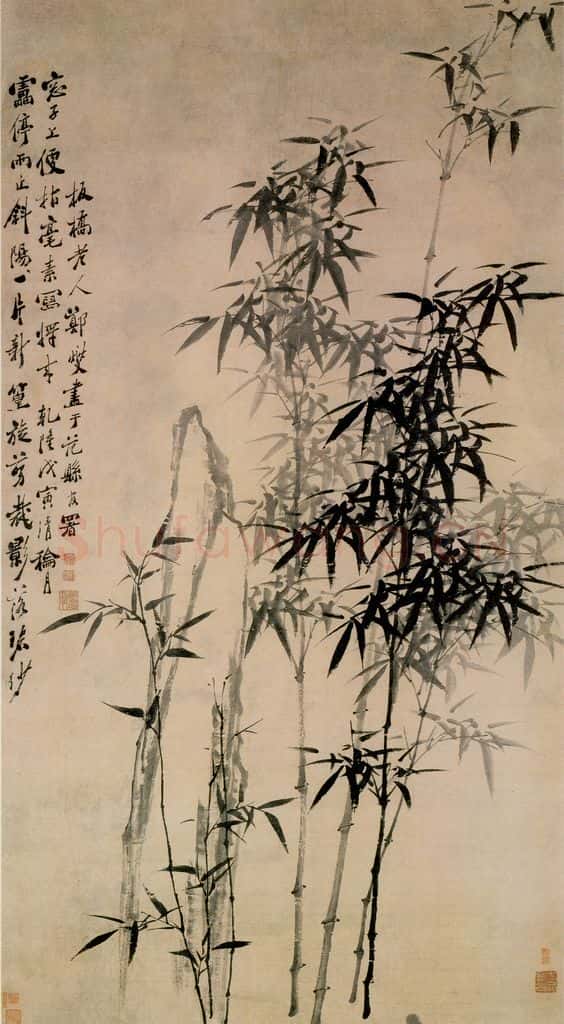 雷停雨止斜陽一片新篁旋剪裁影落碧紗
窓子上便拈毫素寫將來 乾隆戊寅清龝月
板橋老人鄭燮畫于范縣署
Shufawang.cn